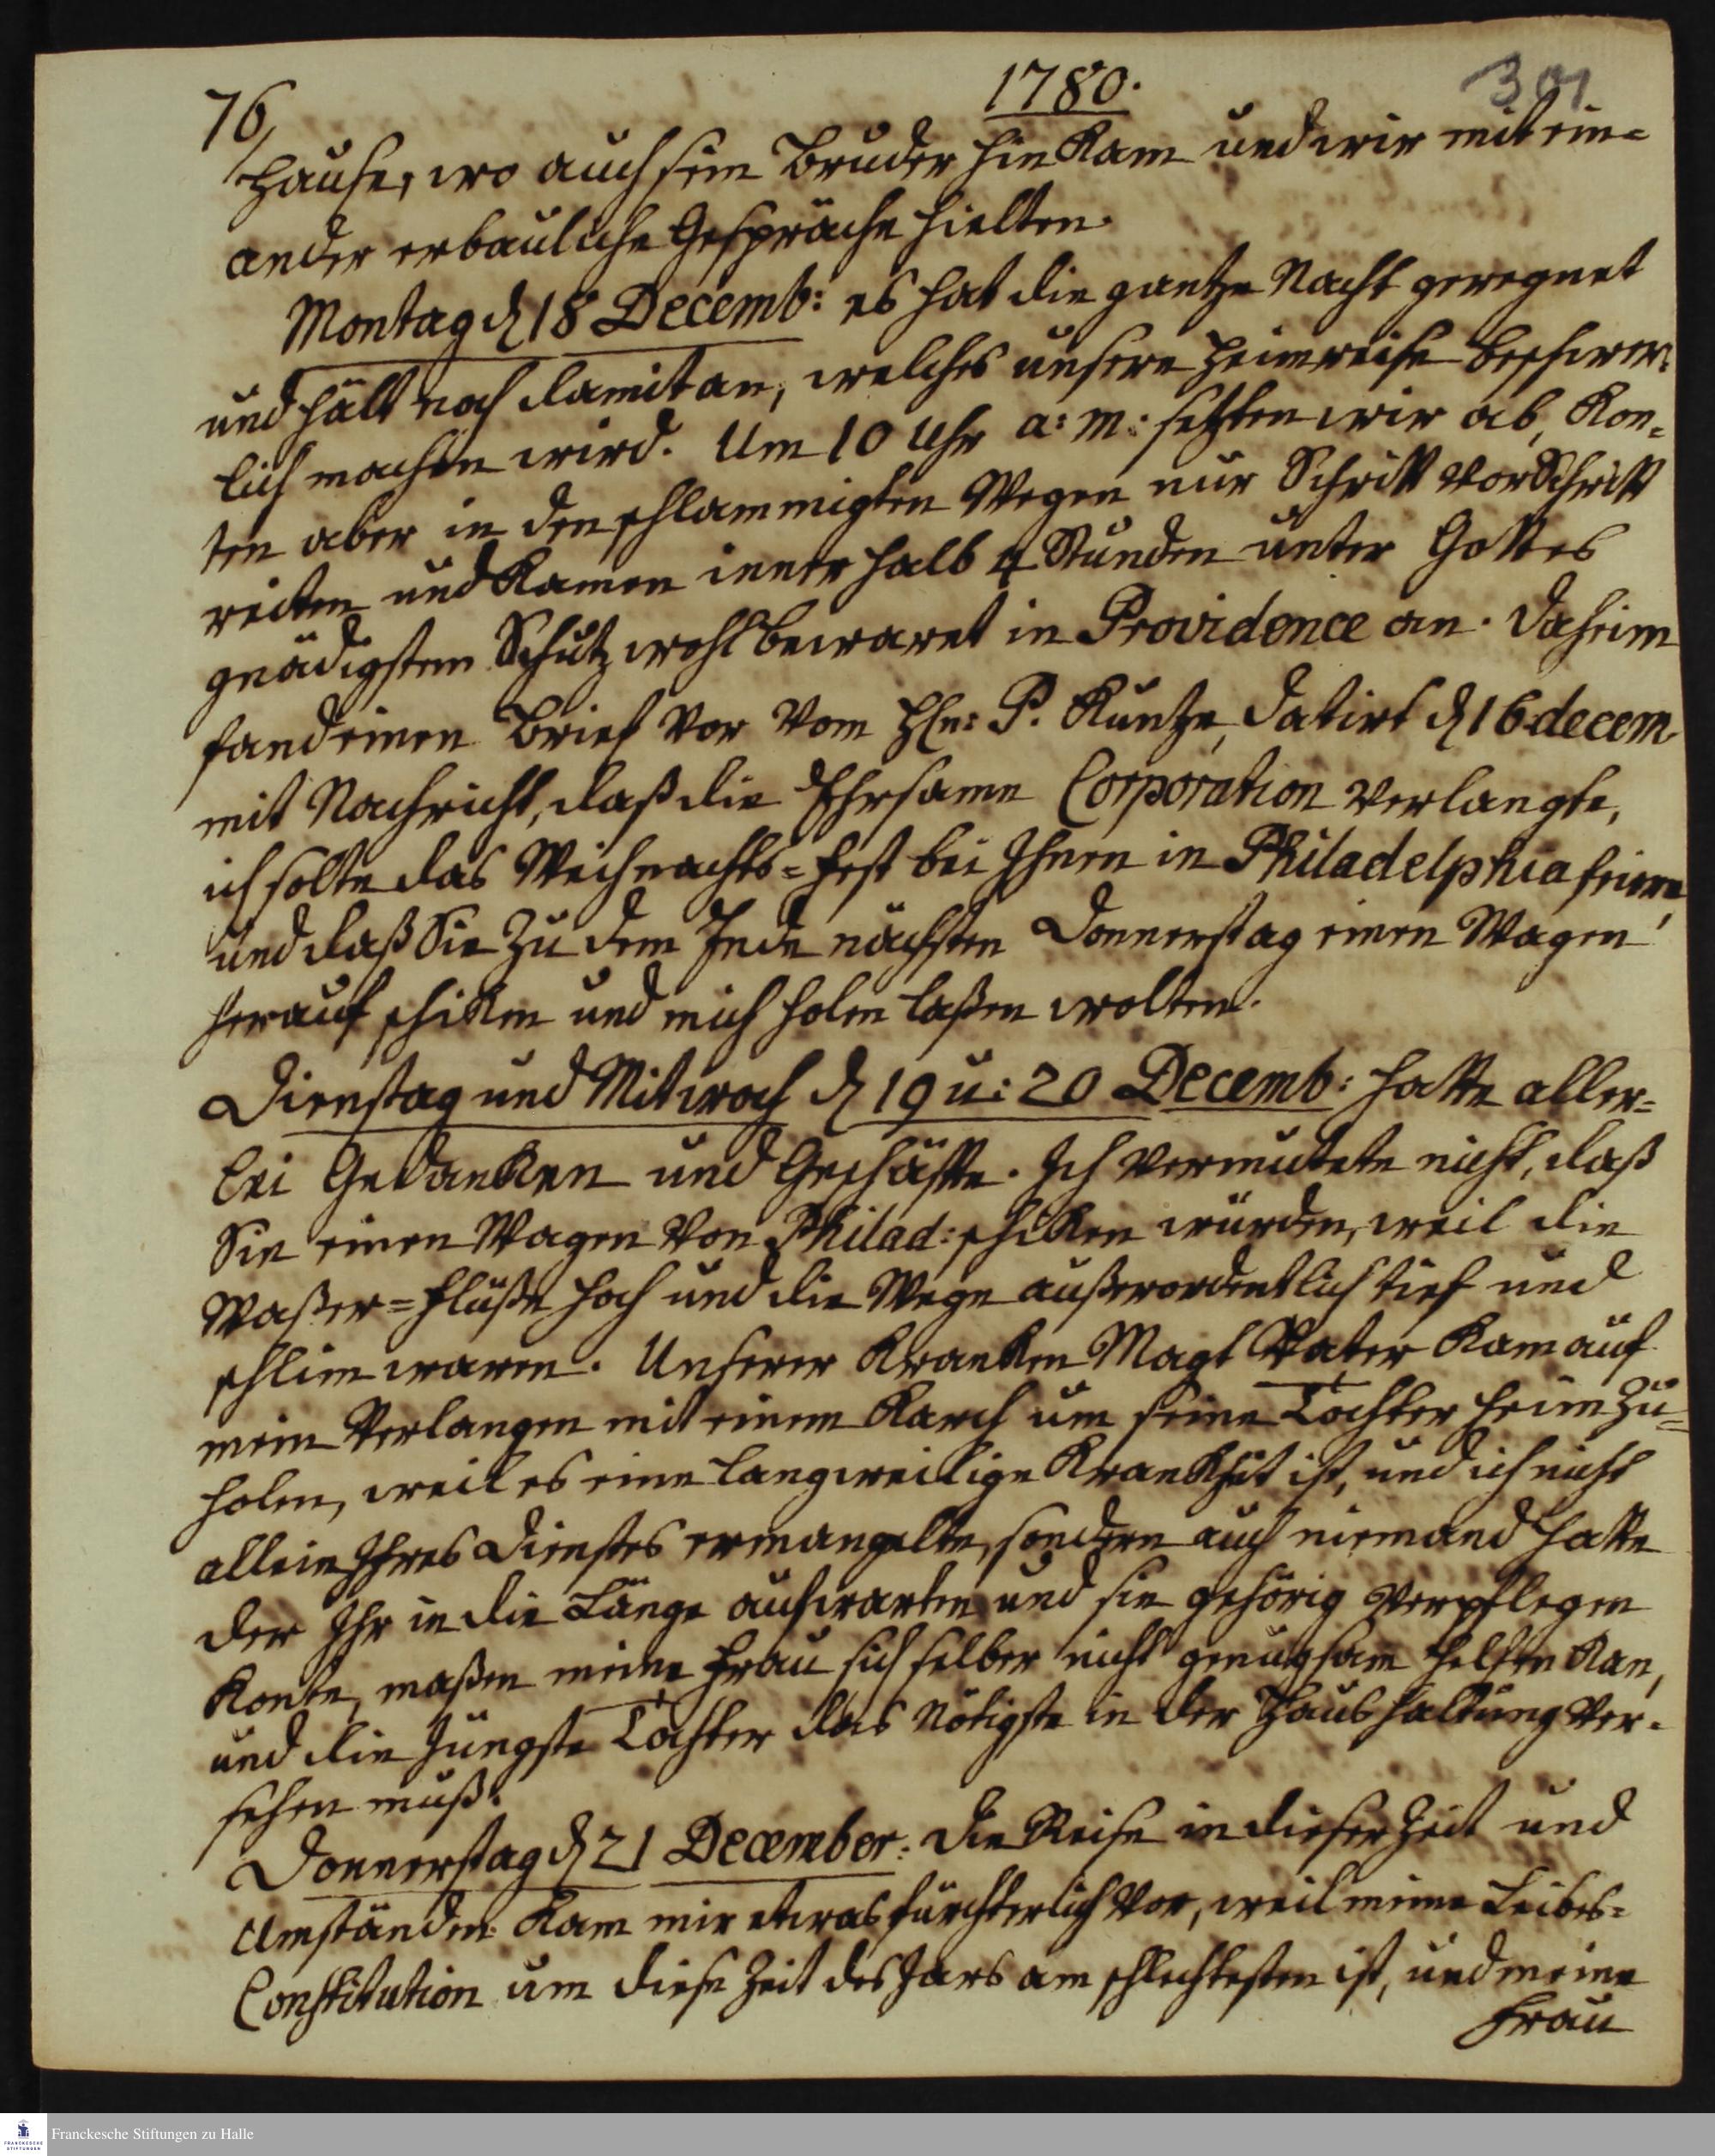 1780.
76,
301
Hause, wo auch sein Bruder hin Kam und wir mit ein=
ander erbauliche Gespräche hielten.
Montag d 18 Decemb: es hat die gantze Nacht geregnet
und hält noch damit an, welches unsere Heimreise beschwer=
lich machen wird. Um 10 Uhr a: m: setzten wir ab, Kon=
ten aber in den schlammigten Wegen nur Schritt vor Schritt
reiten und Kamen innerhalb 4 Stunden unter Gottes
gnädigstem Schutz wohl bewaret in Providence an. Daheim
fand einen Brief vor vom Hln: P. Kuntze, datirt d 16 decem
mit Nachricht, daß die Ehrsame Corporation verlangte,
ich solte das Weihnachts=Fest bei Ihnen in Philadelphia feiern,
und daß Sie zu dem Ende nächsten Donnerstag einen Wagen
herauf schiken und mich holen laßen wolten.
Dienstag und Mitwoch d 19 u: 20 Decemb: hatte aller=
lei Gedanken und Geschäfte. Ich vermutete nicht, daß
Sie einen Wagen von Philad: schiken würden, weil die
Waßer=Flüße hoch und die Wege außerordentlich tief und
schlim waren. Unserer Kranken Magt Vater Kam auf
mein Verlangen mit einem Karch um seine Tochter heim zu=
holen, weil es eine langweilige Krankheit ist, und ich nicht
allein Ihres Dienstes ermangelte, sondern auch niemand hatte
der Ihr in die Länge aufwarten und sie gehörig verpflegen
Konte, maßen meine Frau sich selber nicht genugsam helfen Kan,
und die Jüngste Tochter das Nötigste in der Haushaltung ver=
sehen muß.
Donnerstag d 21 December: die Reise in dieser Zeit und
Umständen Kam mir etwas fürchterlich vor, weil meine Leibes=
Constitution um diese Zeit des Jars am schlechtesten ist, und meine
Frau
FRANCKESCHE STIFTUNGEN
Franckesche Stiftungen zu Halle